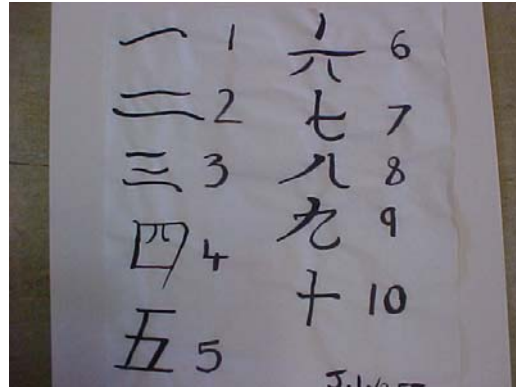 一 1
二 2
三 3
四 4
五 5
六 6
七 7
八 8
九 9
十 10